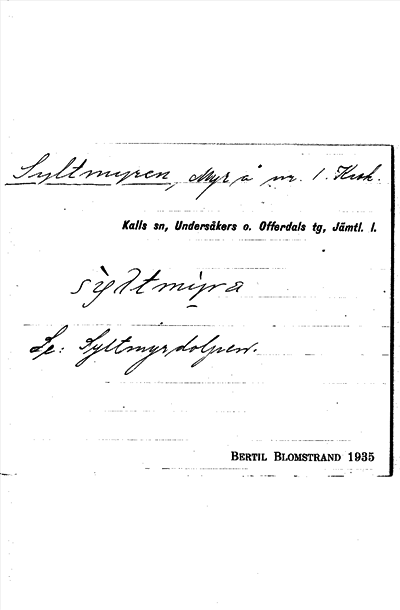 Syltmyren, Myr å nr. 1. Krok.
Kalls sn, Undersåkers o. Offerdals tg, Jämtl. l.
Se: Syltmyrdolpen.
BERTIL BLOMSTRAND 1935